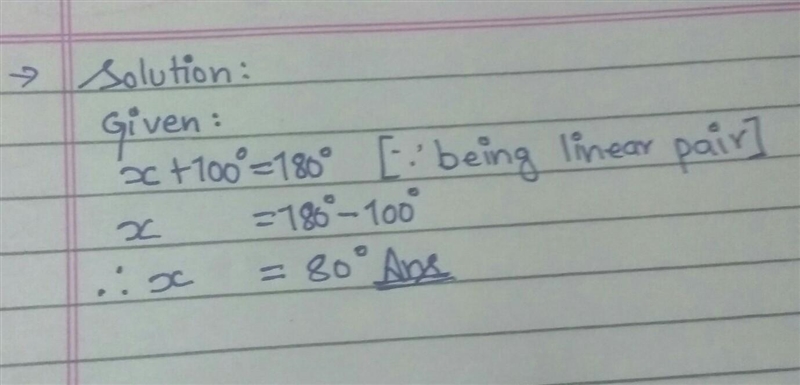 → Solution:
Given:
x + 100° = 180° [∵ being linear pair]
x = 180° - 100°
∴ x = 80° Ans